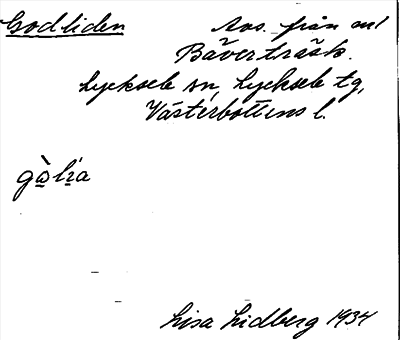 Godliden Avs. från onl
Bäverträsk.
Lycksele sn, Lycksele tg,
Västerbottens l.
gòlia
Lisa Lidberg 1934